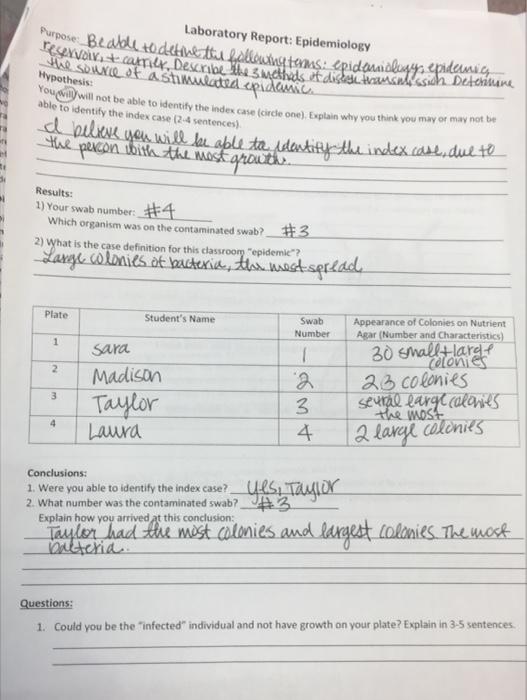 Laboratory Report: Epidemiology
Purpose: Be able to define the following terms: epidemiology, epidemic,
reservoir, + carrier, Describe the 3 methods of disease transmission Determine
the source of a stimulated epidemic.
Hypothesis:
You will/will not be able to identify the index case (circle one). Explain why you think you may or may not be
able to identify the index case (2-4 sentences).
I believe you will be able to identify the index case, due to
the person with the most growth.
Results:
1) Your swab number: #4
Which organism was on the contaminated swab? #3
2) What is the case definition for this classroom "epidemic"?
Large colonies of bacteria, the most spread
Plate Student's Name Swab Number Appearance of Colonies on Nutrient Agar (Number and Characteristics)
1 Sara 1 30 small + large colonies
2 Madison 2 23 colonies
3 Taylor 3 several large colonies the most
4 Laura 4 2 large colonies
Conclusions:
1. Were you able to identify the index case? yes, Taylor
2. What number was the contaminated swab? #3
Explain how you arrived at this conclusion:
Taylor had the most colonies and largest colonies The most
bacteria.
Questions:
1. Could you be the "infected" individual and not have growth on your plate? Explain in 3-5 sentences.